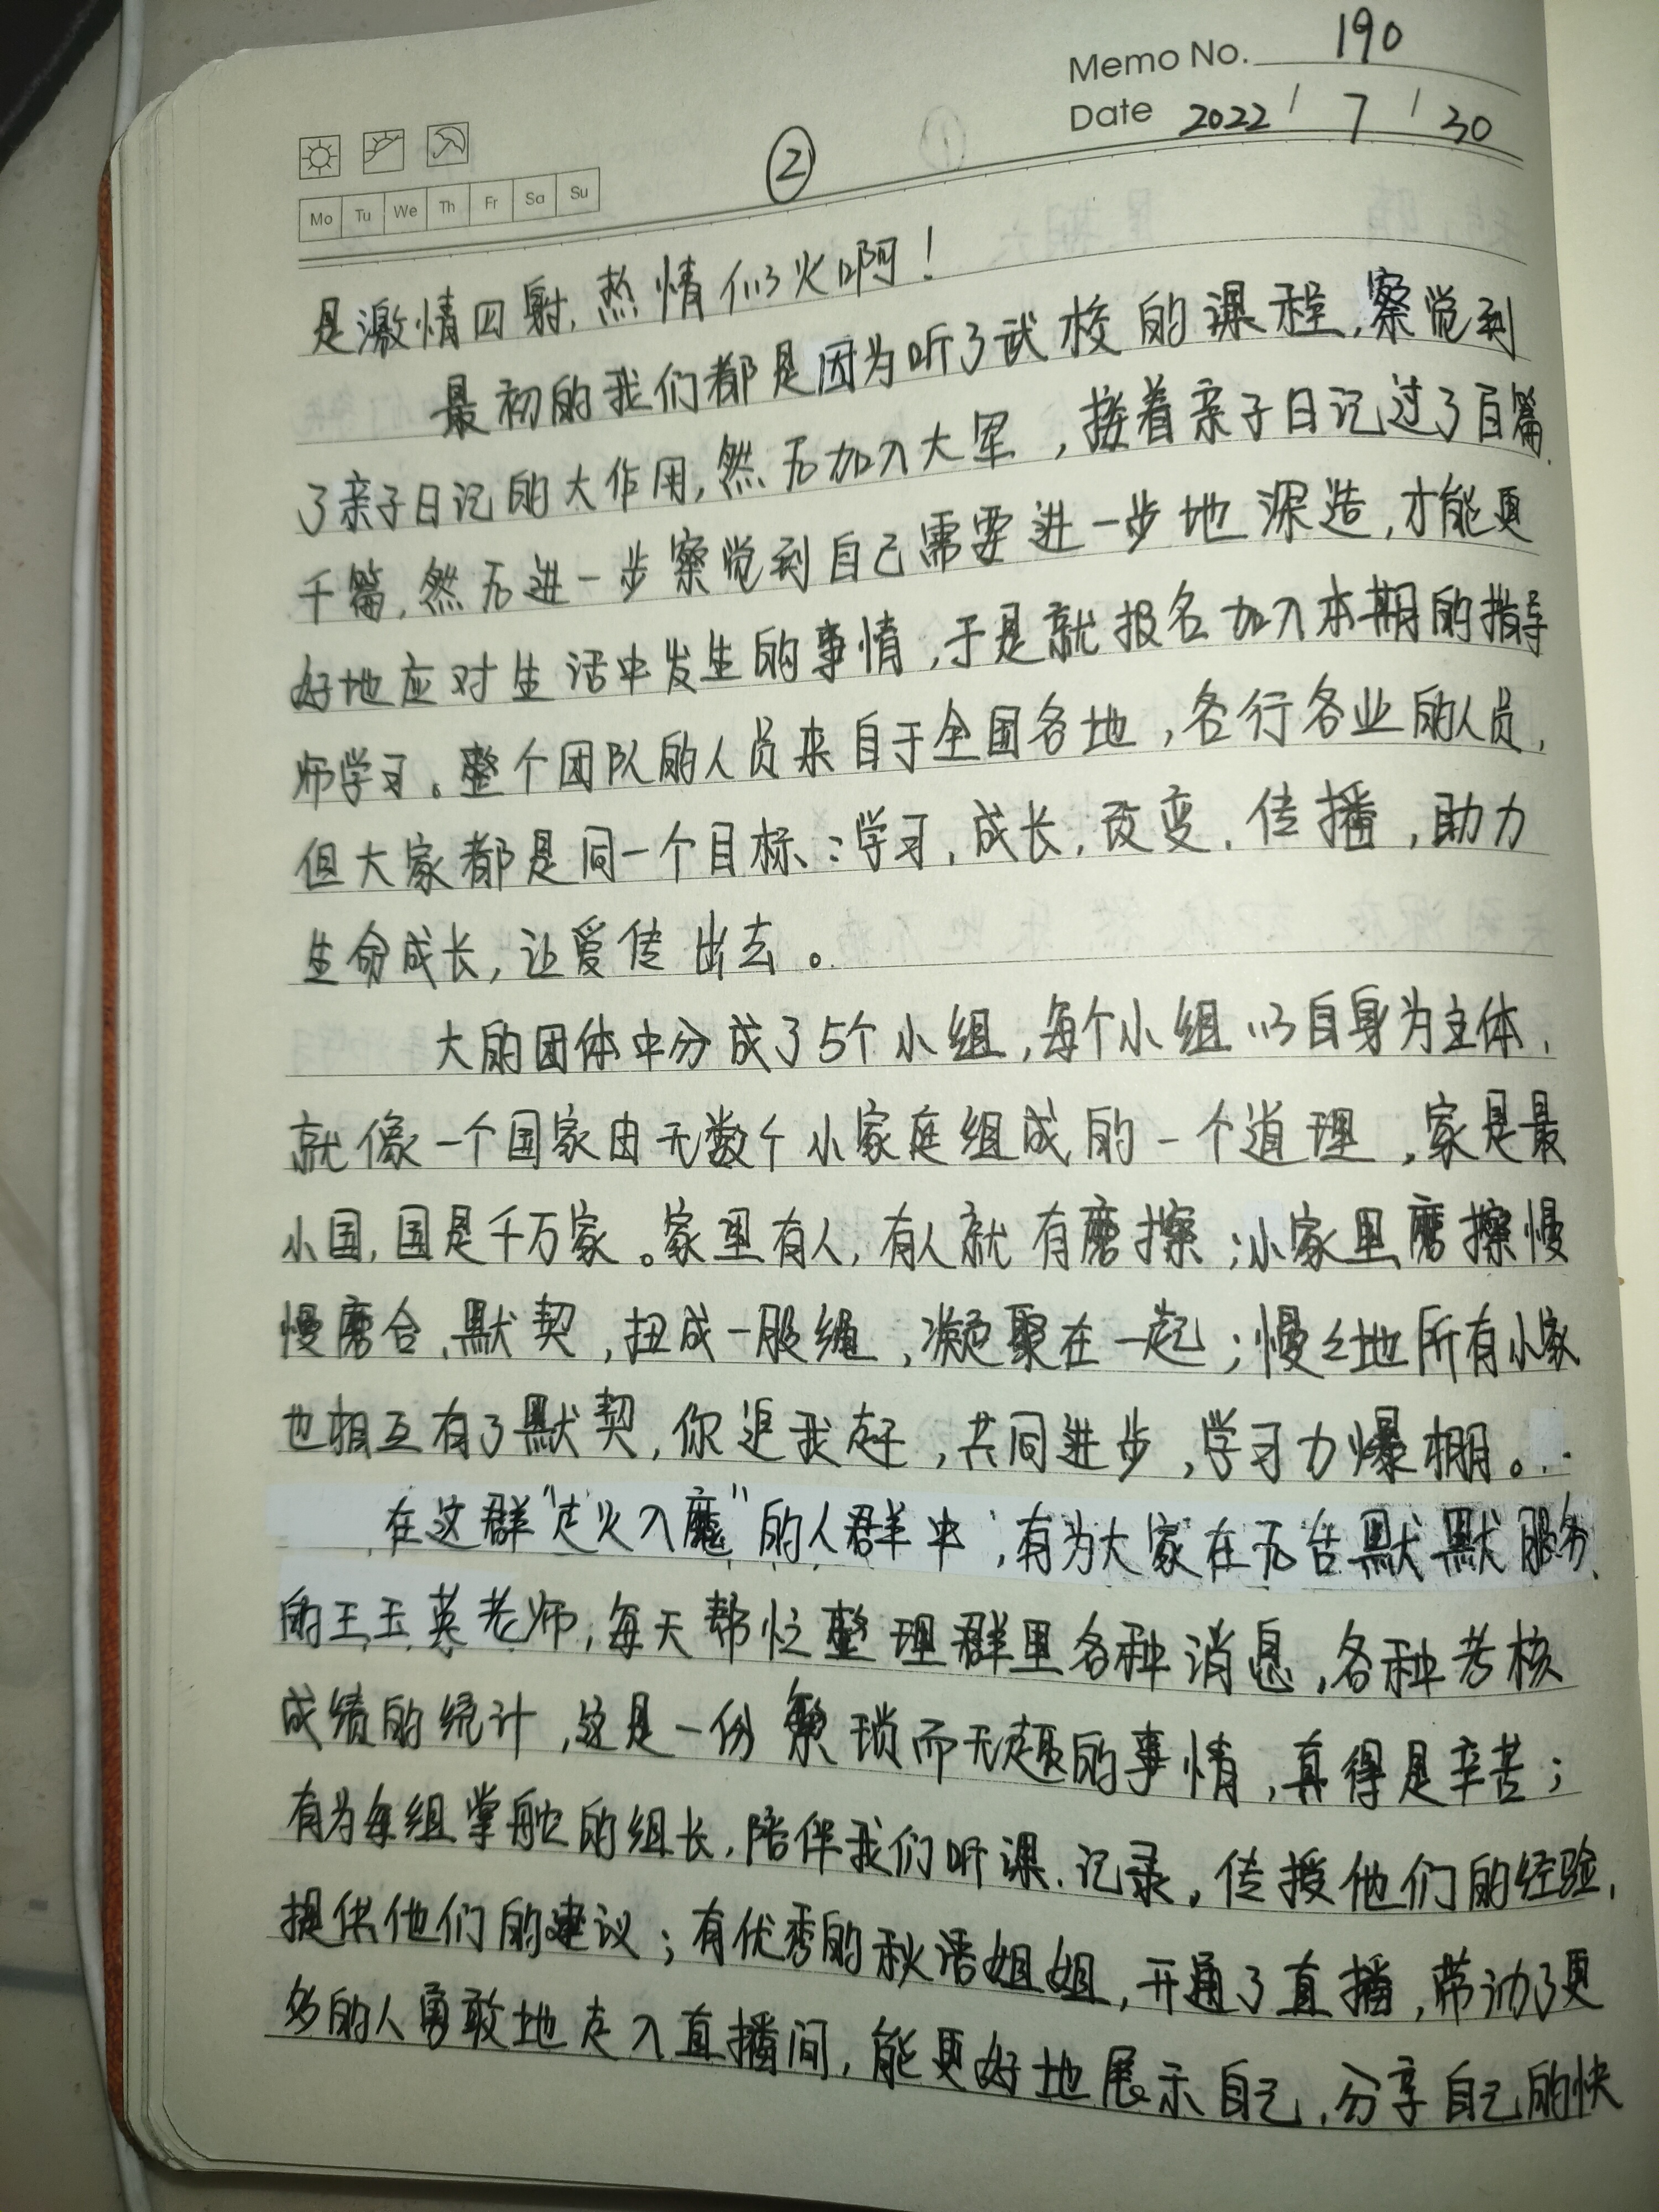 Memo No. 190
Date 2022 / 7 / 30
②
Mo Tu We Th Fr Sa Su
是激情四射,热情似火啊!
最初的我们都是因为听了武校的课程,察觉到
了亲子日记的大作用,然后加入大军,接着亲子日记过了百篇、
千篇,然后进一步察觉到自己需要进一步地深造,才能更
好地应对生活中发生的事情,于是就报名加入本期的指导
师学习。整个团队的人员来自于全国各地,各行各业的人员,
但大家都是同一个目标:学习,成长,改变,传播,助力
生命成长,让爱传出去。
大的团体中分成了5个小组,每个小组以自身为主体,
就像一个国家由无数个小家庭组成的一个道理,家是最
小国,国是千万家。家里有人,有人就有磨擦;小家里磨擦慢
慢磨合、默契,扭成一股绳,凝聚在一起;慢々地所有小家
也相互有了默契,你追我赶,共同进步,学习力爆棚。
在这群“走火入魔”的人群中,有为大家在后台默默服务
的王玉英老师,每天帮忙整理群里各种消息,各种考核
成绩的统计,这是一份繁琐而无趣的事情,真得是辛苦;
有为每组掌舵的组长,陪伴我们听课、记录,传授他们的经验,
提供他们的建议;有优秀的秋语姐姐,开通了直播,带动了更
多的人勇敢地走入直播间,能更好地展示自己,分享自己的快